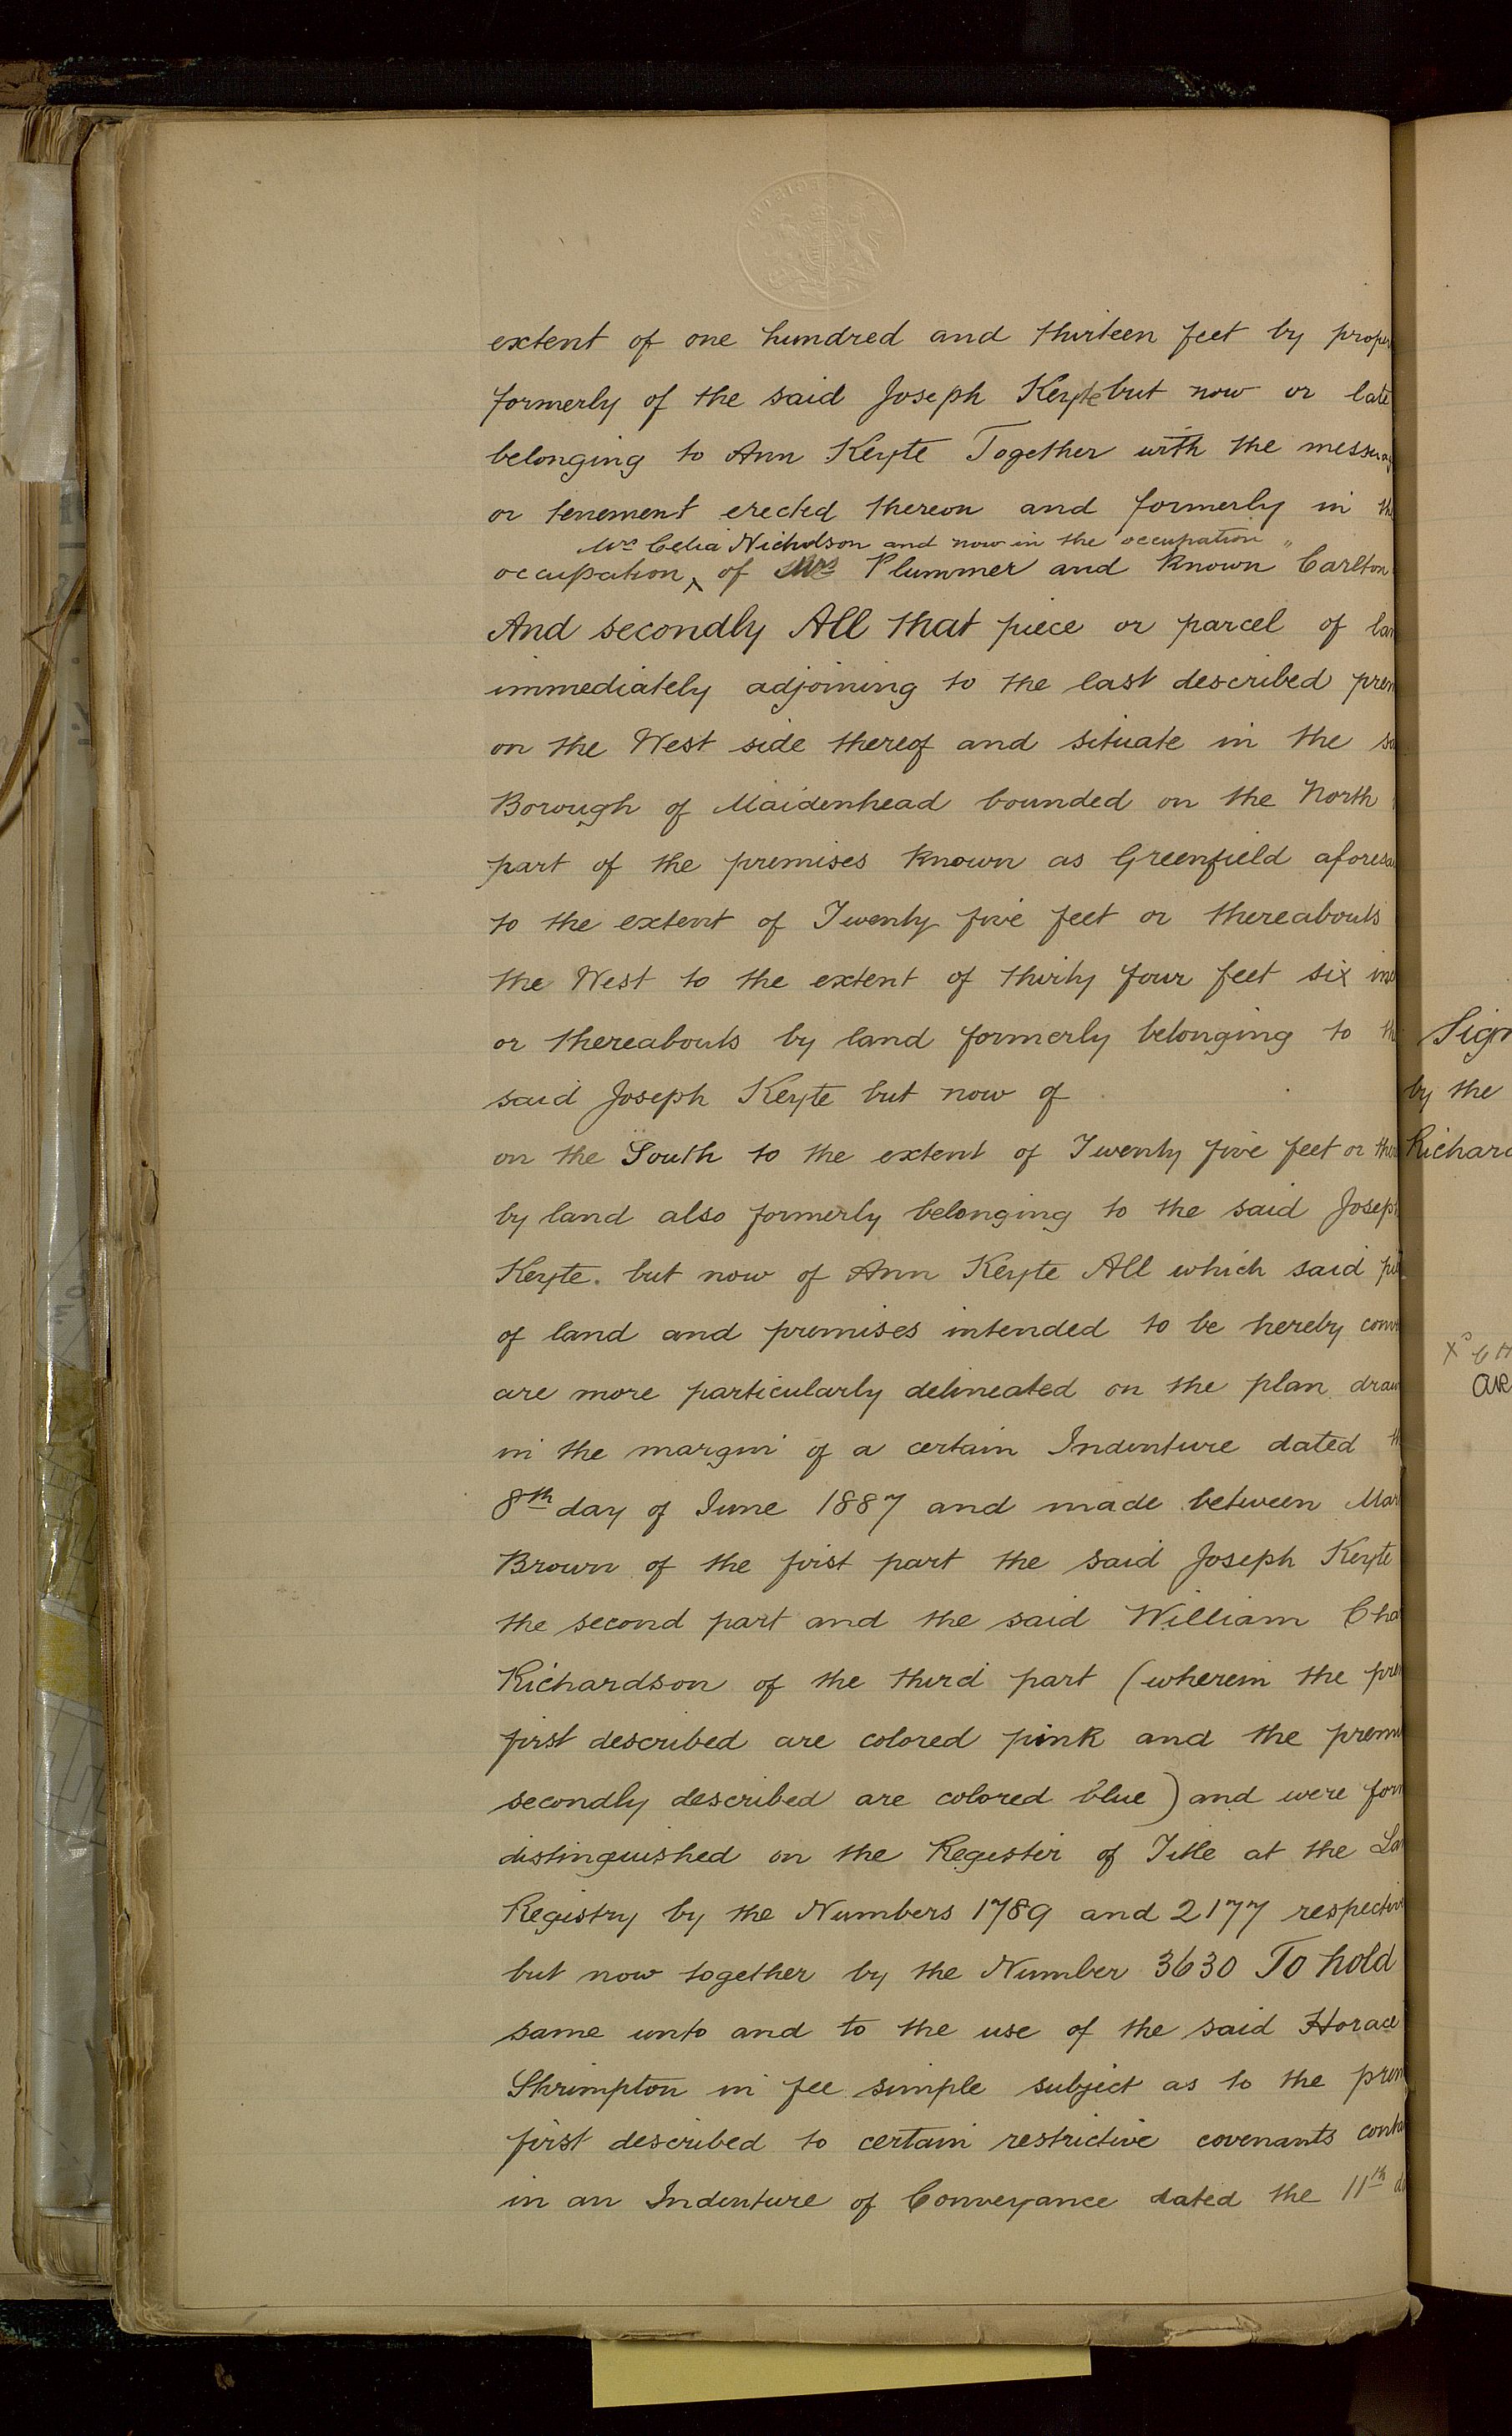 extent of one hundred and thirteen feet by prope
formerly of the said Joseph Keyte but now or late
belonging to Ann Keyte Together with the messuag
or tenement erected thereon and formerly in th
Mrs Celia Nicholson and now in the occupation "
occupation of Mrs Plummer and known Carlton
And secondly All that piece or parcel of lan
immediately adjoining to the last described prem
on the West side thereof and situate in the sa
Borough of Maidenhead bounded on the North
part of the premises known as Greenfield aforesai
to the extent of Twenty five feet or thereabouts
the West to the extent of thirty four feet six inc
or thereabouts by land formerly belonging to th
said Joseph Keyte but now of
on the South to the extent of Twenty five feet or ther
by land also formerly belonging to the said Joseph
Keyte. but now of Ann Keyte All which said pie
of land and premises intended to be hereby conve
are more particularly delineated on the plan draw
in the margin of a certain Indenture dated th
8th day of June 1887 and made between Mar
Brown of the first part the said Joseph Keyte
the second part and the said William Cha
Richardson of the third part (wherein the prem
first described are colored pink and the premi
secondly described are colored blue) and were form
distinguished on the Register of Title at the La
Registry by the Numbers 1789 and 2177 respectiv
but now together by the Number 3630 To hold
same unto and to the use of the said Horace
Shrimpton in fee simple subject as to the prem
first described to certain restrictive covenants conta
in an Indenture of Conveyance dated the 11th da
Sign
by the
Richard